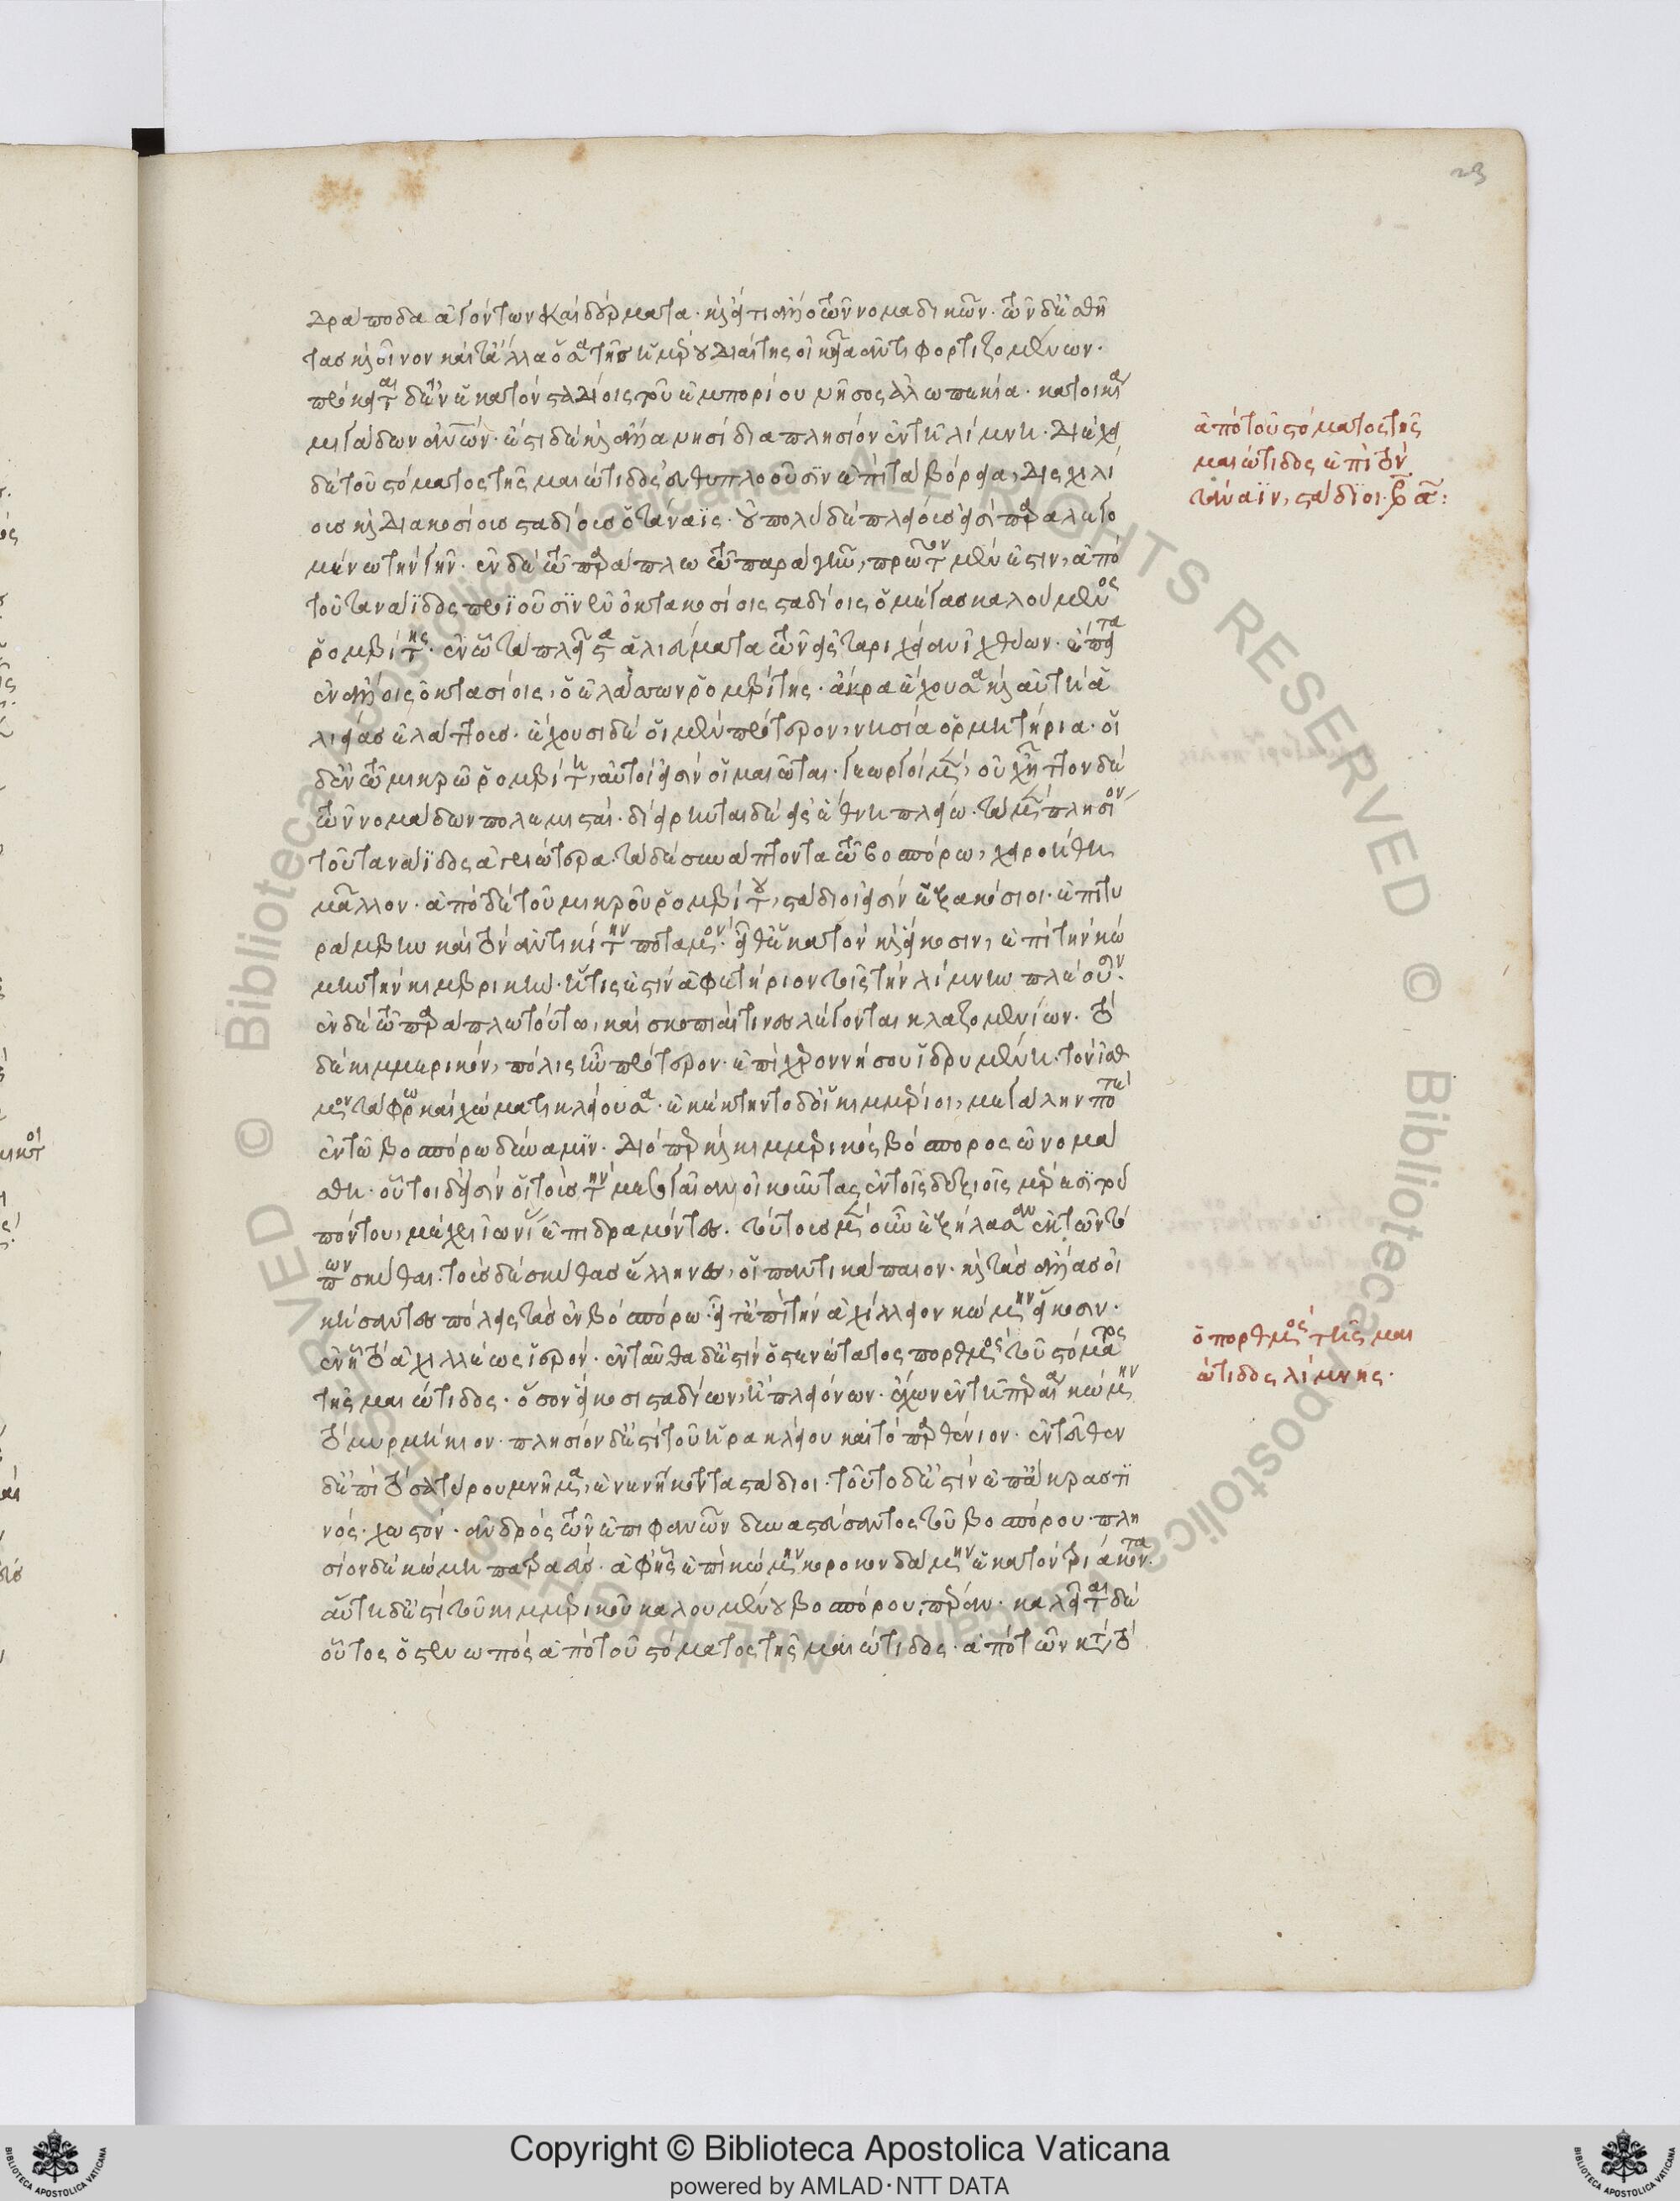 23
δράποδα ἀγόντων καὶ δέρματα· καὶ εἴ τι ἄλλο τῶν νομαδικῶν· τῶν δὲ ἐσθῆ
τας καὶ οἶνον καὶ τἄλλα ὅσα τῆς ἡμέρου διαίτης οἰκεῖα ἀντιφορτιζομένων·
πρόκειται δ' ἐν ἑκατὸν σταδίοις τοῦ ἐμπορίου νῆσος Ἀλωπεκία· κατοικία
μιγάδων ἀνῶν· ἔστι δὲ καὶ ἄλλα νησίδια πλησίον ἐν τῇ λίμνῃ· διέχει
δὲ τοῦ στόματος τῆς μαιώτιδος εὐθυπλοοῦσιν ἐπὶ τὰ βόρεια, δισχιλί
οις καὶ διακοσίοις σταδίοις ὁ τάναϊς· οὐ πολὺ δὲ πλείους εἰσὶ παραλεγο
μένῳ τὴν γῆν· ἐν δὲ τῷ παράπλῳ τῷ παρὰ γῆν, πρῶτον μέν ἐστιν, ἀπὸ
τοῦ ταναΐδος προϊοῦσιν ἐν ὀκτακοσίοις σταδίοις, ὁ μέγας καλούμενος
ῥομβίτης· ἐν ᾧ τὰ πλεῖστα ἁλιεύματα τῶν εἰς ταριχείαν ἰχθύων· ἔπειτα
ἐν ἄλλοις ὀκτασίοις, ὁ ἐλάσσων ῥομβίτης· ἄκρα ἔχουσα καὶ αὐτὴ ἁ
λιείας ἐλάττους· ἔχουσι δὲ οἱ μὲν πρότερον, νησία ὁρμητήρια· οἱ
δ' ἐν τῷ μικρῷ ῥομβίτῃ, αὐτοί εἰσιν οἱ μαιῶται· γεωργοὶ μὲν, οὐχ ἧττον δὲ
τῶν νομάδων πολεμισταί· διῄρηνται δὲ εἰς ἔθνη πλείω· τὰ μὲν πλησίον
τοῦ ταναΐδος ἀγριώτερα· τὰ δὲ συνάπτοντα τῷ βοσπόρῳ, χειροήθη
μᾶλλον· ἀπὸ δὲ τοῦ μικροῦ ῥομβίτου, στάδιοί εἰσιν ἑξακόσιοι· ἐπὶ τυ
ράμβην καὶ τὸν ἀντικίτην ποταμόν· εἶθ' ἑκατὸν καὶ εἴκοσιν, ἐπὶ τὴν κώ
μην τὴν κιμβρικήν· ἥτις ἐστὶν ἀφετήριον τοῖς τὴν λίμνην πλέουσιν·
ἐν δὲ τῷ παράπλῳ τούτῳ, καὶ σκοπιαί τινες λέγονται κλαζομενίων· τὸ
δὲ κιμμερικὸν, πόλις ἦν πρότερον· ἐπὶ χερρονήσου ἱδρυμένη· τὸν ἰσθ
μὸν τάφρῳ καὶ χώματι κλείουσα· ἐκέκτηντο δ' οἱ κιμμέριοι, μεγάλην ποτὲ
ἐν τῷ βοσπόρῳ δύναμιν· διόπερ καὶ κιμμερικὸς βόσπορος ὠνομά
σθη· οὗτοι δ' εἰσὶν οἱ τοὺς τὴν μεσόγαιαν οἰκοῦντας ἐν τοῖς δεξιοῖς μέρεσι τοῦ
πόντου, μέχρι ἰωνί ἐπιδραμόντες. τούτους μὲν οὖν ἐξήλασαν ἐκ τῶν τό
πων σκύθαι· τοὺς δὲ σκύθας ἕλληνες, οἱ παντικάπαιον· καὶ τὰς ἄλλας οἰ
κήσαντες πόλεις τὰς ἐν βοσπόρῳ· εἶτ' ἐπὶ τὴν ἀχίλλειον κώμην εἴκοσιν·
ἐν ᾗ τὸ ἀχιλλέως ἱερόν· ἐνταῦθα δ' ἐστὶν ὁ στενώτατος πορθμὸς τοῦ στόματος
τῆς μαιώτιδος· ὅσον εἴκοσι σταδίων, ἢ πλειόνων· ἔχων ἐν τῇ περαίᾳ κώμην
τὸ μυρμήκιον· πλησίον δ' ἐστὶ τοῦ ἡρακλείου καὶ τὸ παρθένιον· ἐντεῦθεν
δ' ἐπὶ τὸ σατύρου μνῆμα, ἐνενήκοντα στάδιοι· τοῦτο δ' ἐστὶν ἐπ' ἄκρας τι
νὸς· χωστόν· ἀνδρὸς τῶν ἐπιφανῶν δυναστεύσαντος τοῦ βοσπόρου· πλη
σίον δὲ κώμη πατραεύς· ἀφ' ἧς ἐπὶ κώμην κοροκονδάμην ἑκατὸν τριάκοντα·
αὕτη δ' ἐστὶ τοῦ κιμμερικοῦ καλουμένου βοσπόρου, πέρας· καλεῖται δὲ
οὕτως ὁ στενωπὸς ἀπὸ τοῦ στόματος τῆς μαιώτιδος· ἀπὸ τῶν κατὰ τὸ
ἀπὸ τοῦ στόματος τῆς
μαιώτιδος ἐπὶ τὸν
τάναϊν, στάδιοι ͵β σ̅:
ὁ πορθμὸς τῆς μαι
ώτιδος λίμνης·
© Biblioteca Apostolica Vaticana ALL RIGHTS RESERVED
© Biblioteca Apostolica Vaticana ALL RIGHTS RESERVED
Copyright © Biblioteca Apostolica Vaticana
powered by AMLAD·NTT DATA
BIBLIOTECA APOSTOLICA VATICANA
BIBLIOTECA APOSTOLICA VATICANA